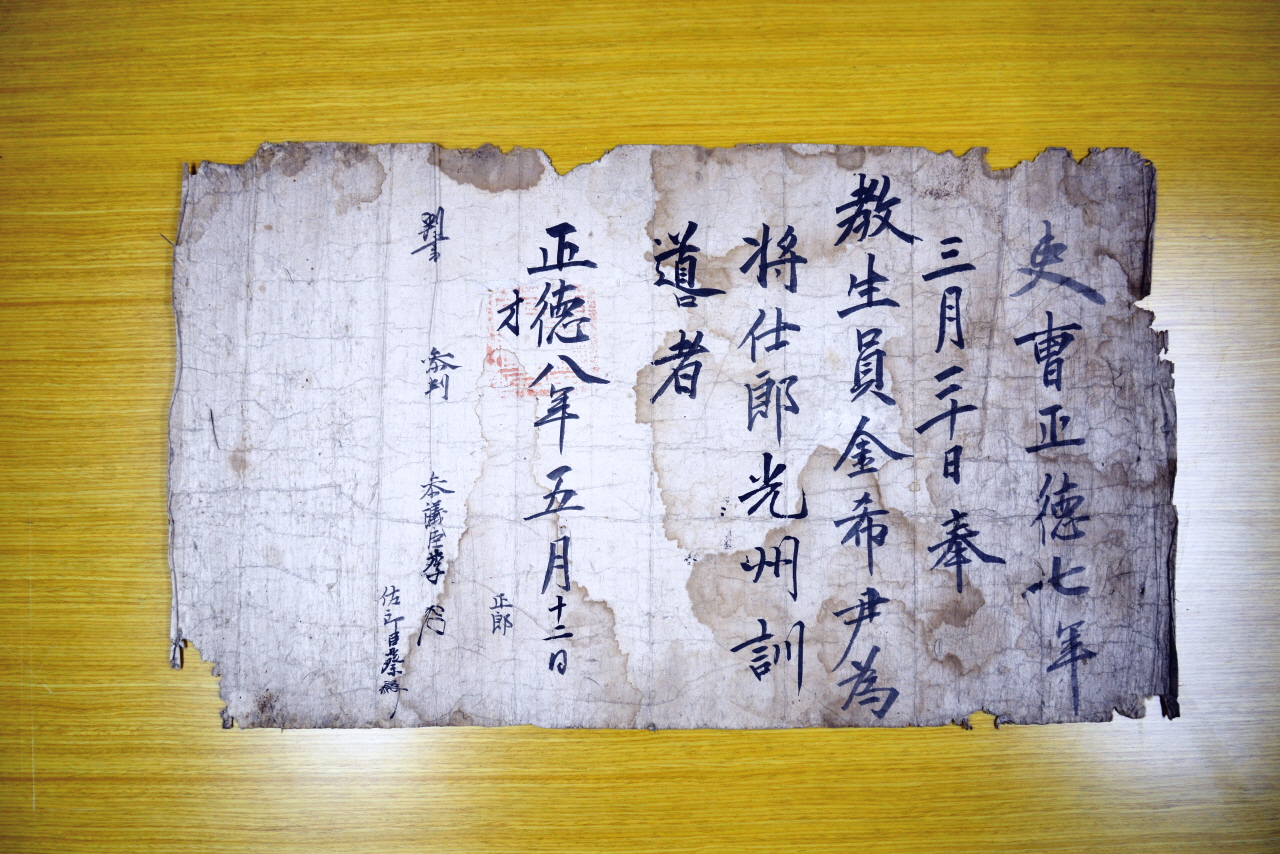 吏曹正德七年
三月二十日奉
教生員金希尹為
将仕郎光州訓
道者
正德八年五月十二日
才
正郎
判書 参判 参議臣李
佐郎臣蔡